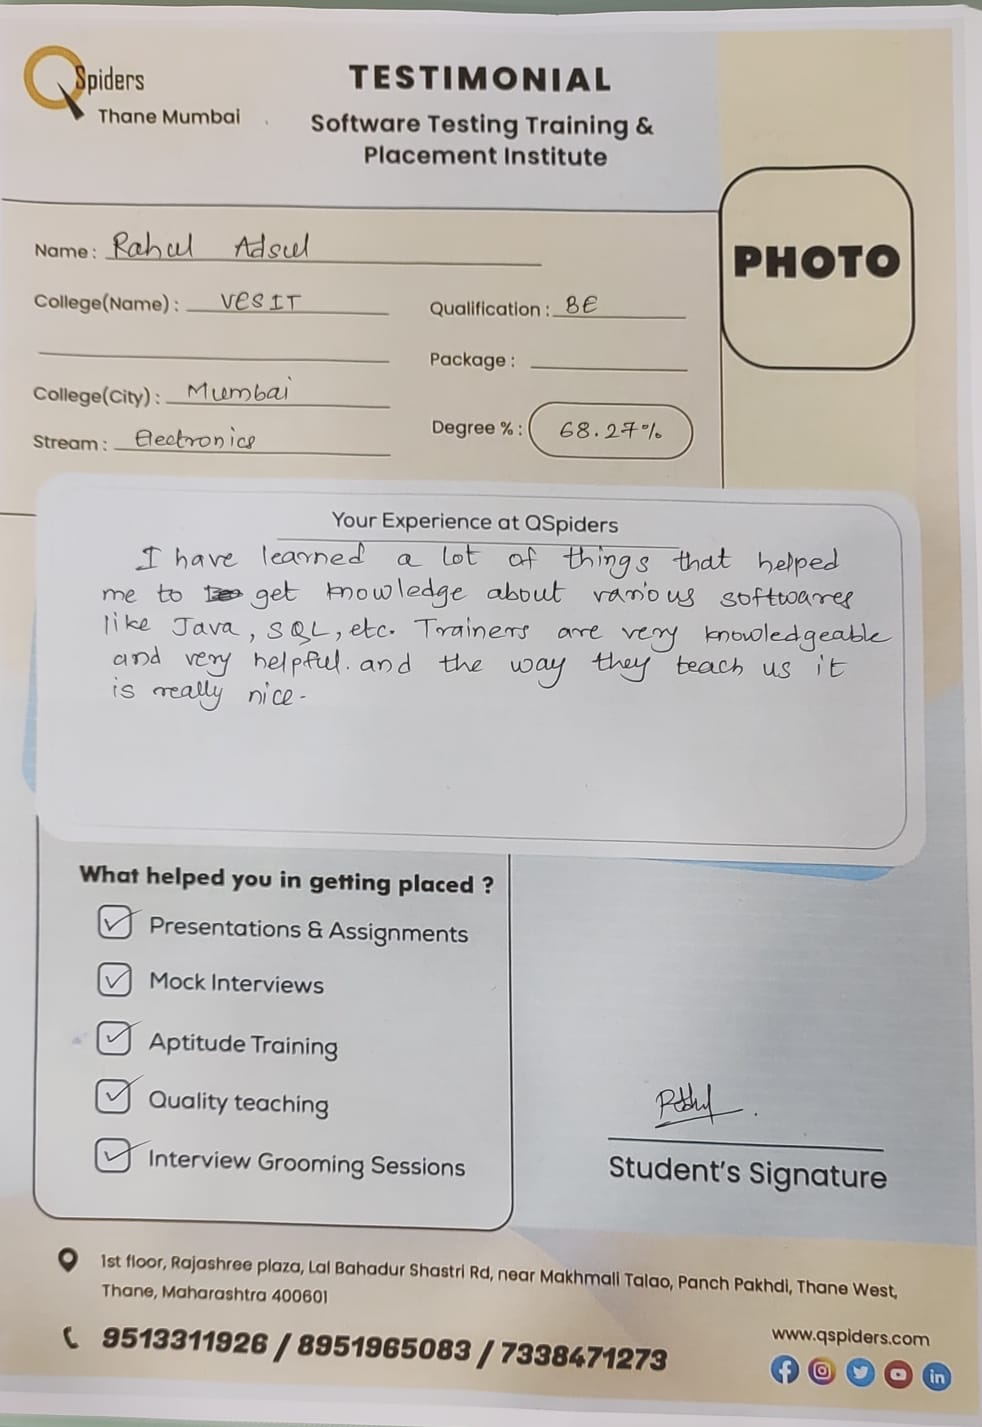 QSpiders
Thane Mumbai
TESTIMONIAL
Software Testing Training &
Placement Institute
PHOTO
Name : Rahul Adsul
College(Name) : VESIT
Qualification : BE
Package :
College(City) : Mumbai
Degree % : 68.27%
Stream : Electronics
Your Experience at QSpiders
I have learned a lot of things that helped
me to get knowledge about various softwares
like Java, SQL, etc. Trainers are very knowledgeable
and very helpful. and the way they teach us it
is really nice.
What helped you in getting placed ?
Presentations & Assignments
Mock Interviews
Aptitude Training
Quality teaching
Interview Grooming Sessions
Student's Signature
1st floor, Rajashree plaza, Lal Bahadur Shastri Rd, near Makhmali Talao, Panch Pakhdi, Thane West,
Thane, Maharashtra 400601
9513311926 / 8951965083 / 7338471273
www.qspiders.com